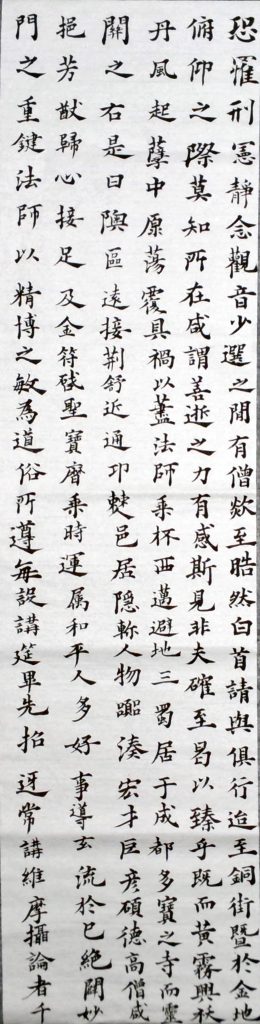 恐罹刑憲靜念觀音少選之間有僧欻至晧然白首請與俱行迨至銅街暨於金地
俯仰之際莫知所在咸謂善逝之力有感斯見非夫確至曷以臻乎既而黃霧興祅
丹風起孽中原蕩覆具禍以藎法師乘杯西邁避地三蜀居于成都多寶之寺而靈
關之右是曰隩區遠接荊舒近通邛僰邑居隱軫人物湊宏才巨彥碩德高僧咸
挹芳猷歸心接足及金符啟聖寶曆乘時運属和平人多好事導玄流於已絕闢妙
門之重鍵法師以精博之敏為道俗所遵每設講筵畢先招迓常講維摩攝論者千